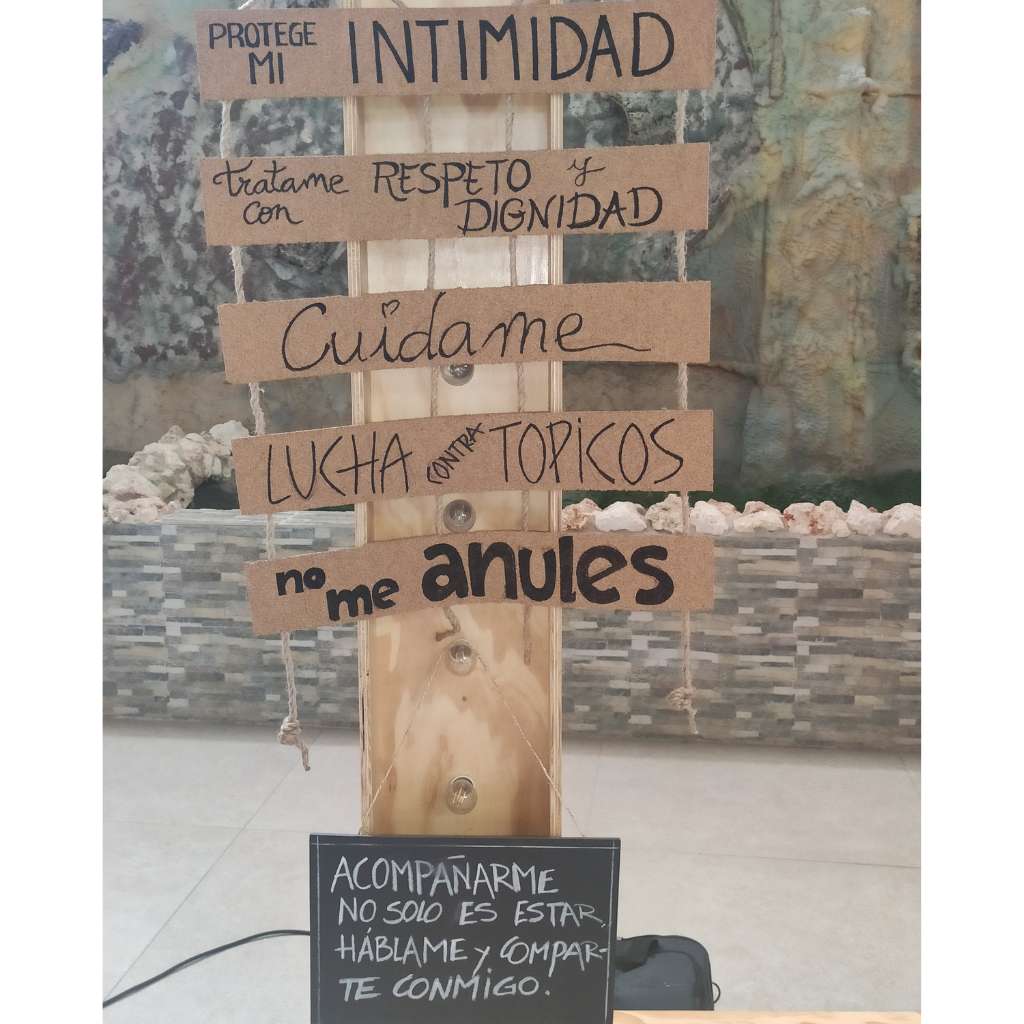 PROTEGE MI INTIMIDAD
tratame con RESPETO y DIGNIDAD
Cuidame
LUCHA CONTRA TOPiCOS
no me anules
ACOMPAÑARME
NO SOLO ES ESTAR,
HÁBLAME y COMPAR-
TE CONMIGO.